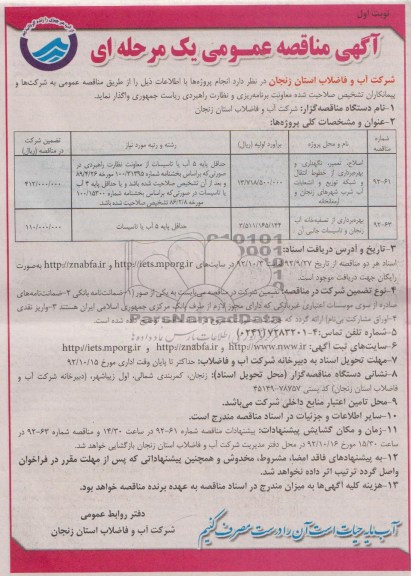 نوبت اول
آگهی مناقصه عمومی یک مرحله ای
شرکت آب و فاضلاب استان زنجان در نظر دارد انجام پروژه‌ها با اطلاعات ذیل را از طریق مناقصه عمومی به شرکت‌ها و
پیمانکاران تشخیص صلاحیت شده معاونت برنامه‌ریزی و نظارت راهبردی ریاست جمهوری واگذار نماید.
۱-نام دستگاه مناقصه‌گزار: شرکت آب و فاضلاب استان زنجان
۲-عنوان و مشخصات کلی پروژه‌ها:
شماره مناقصه
نام و محل پروژه
برآورد اولیه (ریال)
رشته و رتبه مورد نیاز
تضمین شرکت در مناقصه (ریال)
۹۲-۶۱
اصلاح، تعمیر، نگهداری و
بهره‌برداری از خطوط انتقال
و شبکه توزیع و انشعابات
آب شرب شهرهای زنجان و
ارمغانخانه
۱۳/۷۱۸/۵۰۰/۰۰۰
حداقل پایه ۵ آب یا تاسیسات از معاونت نظارت راهبردی در
صورتی‌که براساس بخشنامه شماره ۱۰۰/۲۱۳۴۵ مورخه ۸۹/۴/۲۶
و بعد از آن تشخیص صلاحیت شده باشد و یا حداقل پایه ۴ آب
یا تاسیسات در صورتی‌که بر اساس بخشنامه شماره ۱۰۰/۱۵۳۰۰
مورخه ۸۶/۲/۸ تشخیص صلاحیت شده باشد.
۴۱۲/۰۰۰/۰۰۰
۹۲-۶۳
بهره‌برداری از تصفیه‌خانه آب
زنجان و تاسیسات جانبی آن
۲/۵۱۱/۱۴۵/۱۳۴
حداقل پایه ۵ آب یا تاسیسات
۱۱۰/۰۰۰/۰۰۰
۳-تاریخ و آدرس دریافت اسناد:
اسناد هر دو مناقصه از تاریخ ۹۲/۹/۲۷ لغایت ۹۲/۱۰/۳ در سایت‌های http://iets.mporg.ir و http://znabfa.ir به‌صورت
رایگان جهت دریافت موجود است.
۴-نوع تضمین شرکت در مناقصه: تضمین شرکت در مناقصه می‌بایست به یکی از صور ۱-ضمانت‌نامه بانکی ۲-ضمانت‌نامه‌های
صادره از سوی موسسات اعتباری غیربانکی که دارای مجوز لازم از طرف بانک مرکزی جمهوری اسلامی ایران هستند ۳-واریز نقدی
۵-شماره تلفن تماس: ۴-۷۲۸۳۲۰۱ (۰۲۴۱)
۶-سایت‌های ثبت آگهی: http://www.nww.ir و http://znabfa.ir و http//iets.mporg.ir
۷-مهلت تحویل اسناد به دبیرخانه شرکت آب و فاضلاب: حداکثر تا پایان وقت اداری مورخ ۹۲/۱۰/۱۵
۸-نشانی دستگاه مناقصه‌گزار (محل تحویل اسناد): زنجان، کمربندی شمالی، اول زیباشهر، (دبیرخانه شرکت آب و
فاضلاب استان زنجان) کدپستی ۷۸۷۵۷-۴۵۱۴۹
۹-محل تامین اعتبار منابع داخلی شرکت می‌باشد.
۱۰-سایر اطلاعات و جزئیات در اسناد مناقصه مندرج است.
۱۱-زمان و مکان گشایش پیشنهادات: پیشنهادات مناقصه شماره ۶۱-۹۲ در ساعت ۱۴/۳۰ و مناقصه شماره ۶۳-۹۲ در
ساعت ۱۵/۳۰ مورخ ۹۲/۱۰/۱۶ در محل دفتر مدیریت شرکت آب و فاضلاب استان زنجان بازگشایی خواهد شد.
۱۲-به پیشنهادهای فاقد امضا، مشروط، مخدوش و همچنین پیشنهاداتی که پس از مهلت مقرر در فراخوان
واصل گردد ترتیب اثر داده نخواهد شد.
۱۳-هزینه کلیه آگهی‌ها به میزان مندرج در اسناد مناقصه به عهده برنده مناقصه خواهد بود.
دفتر روابط عمومی
شرکت آب و فاضلاب استان زنجان
آب مایه حیات است آن را درست مصرف کنیم
ParsNamadData